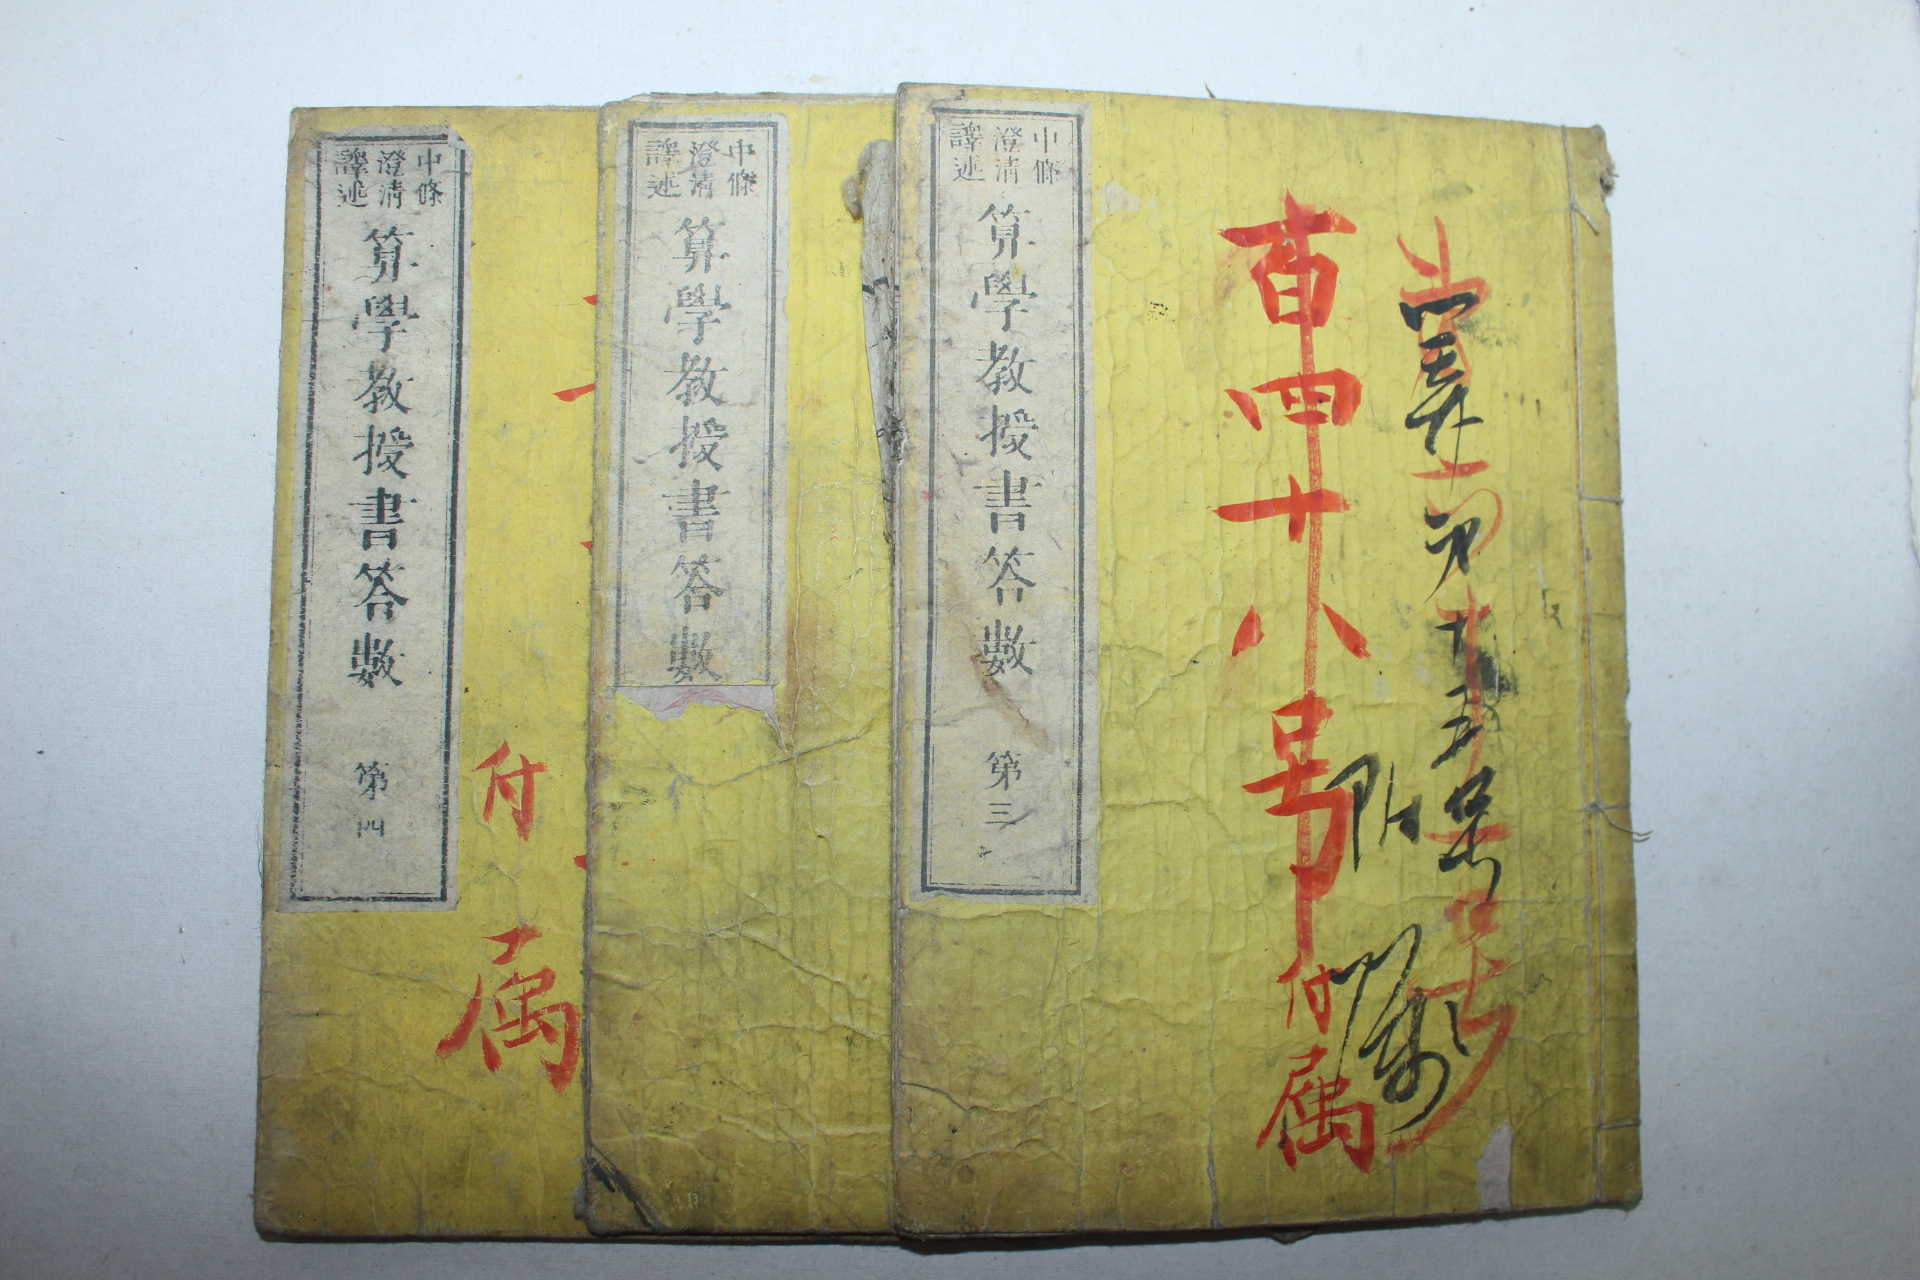 中條
澄清
譯述
算學教授書答數 第三
百四十八号
付属
附
中條
澄清
譯述
算學教授書答數
中條
澄清
譯述
算學教授書答數 第四
付
属